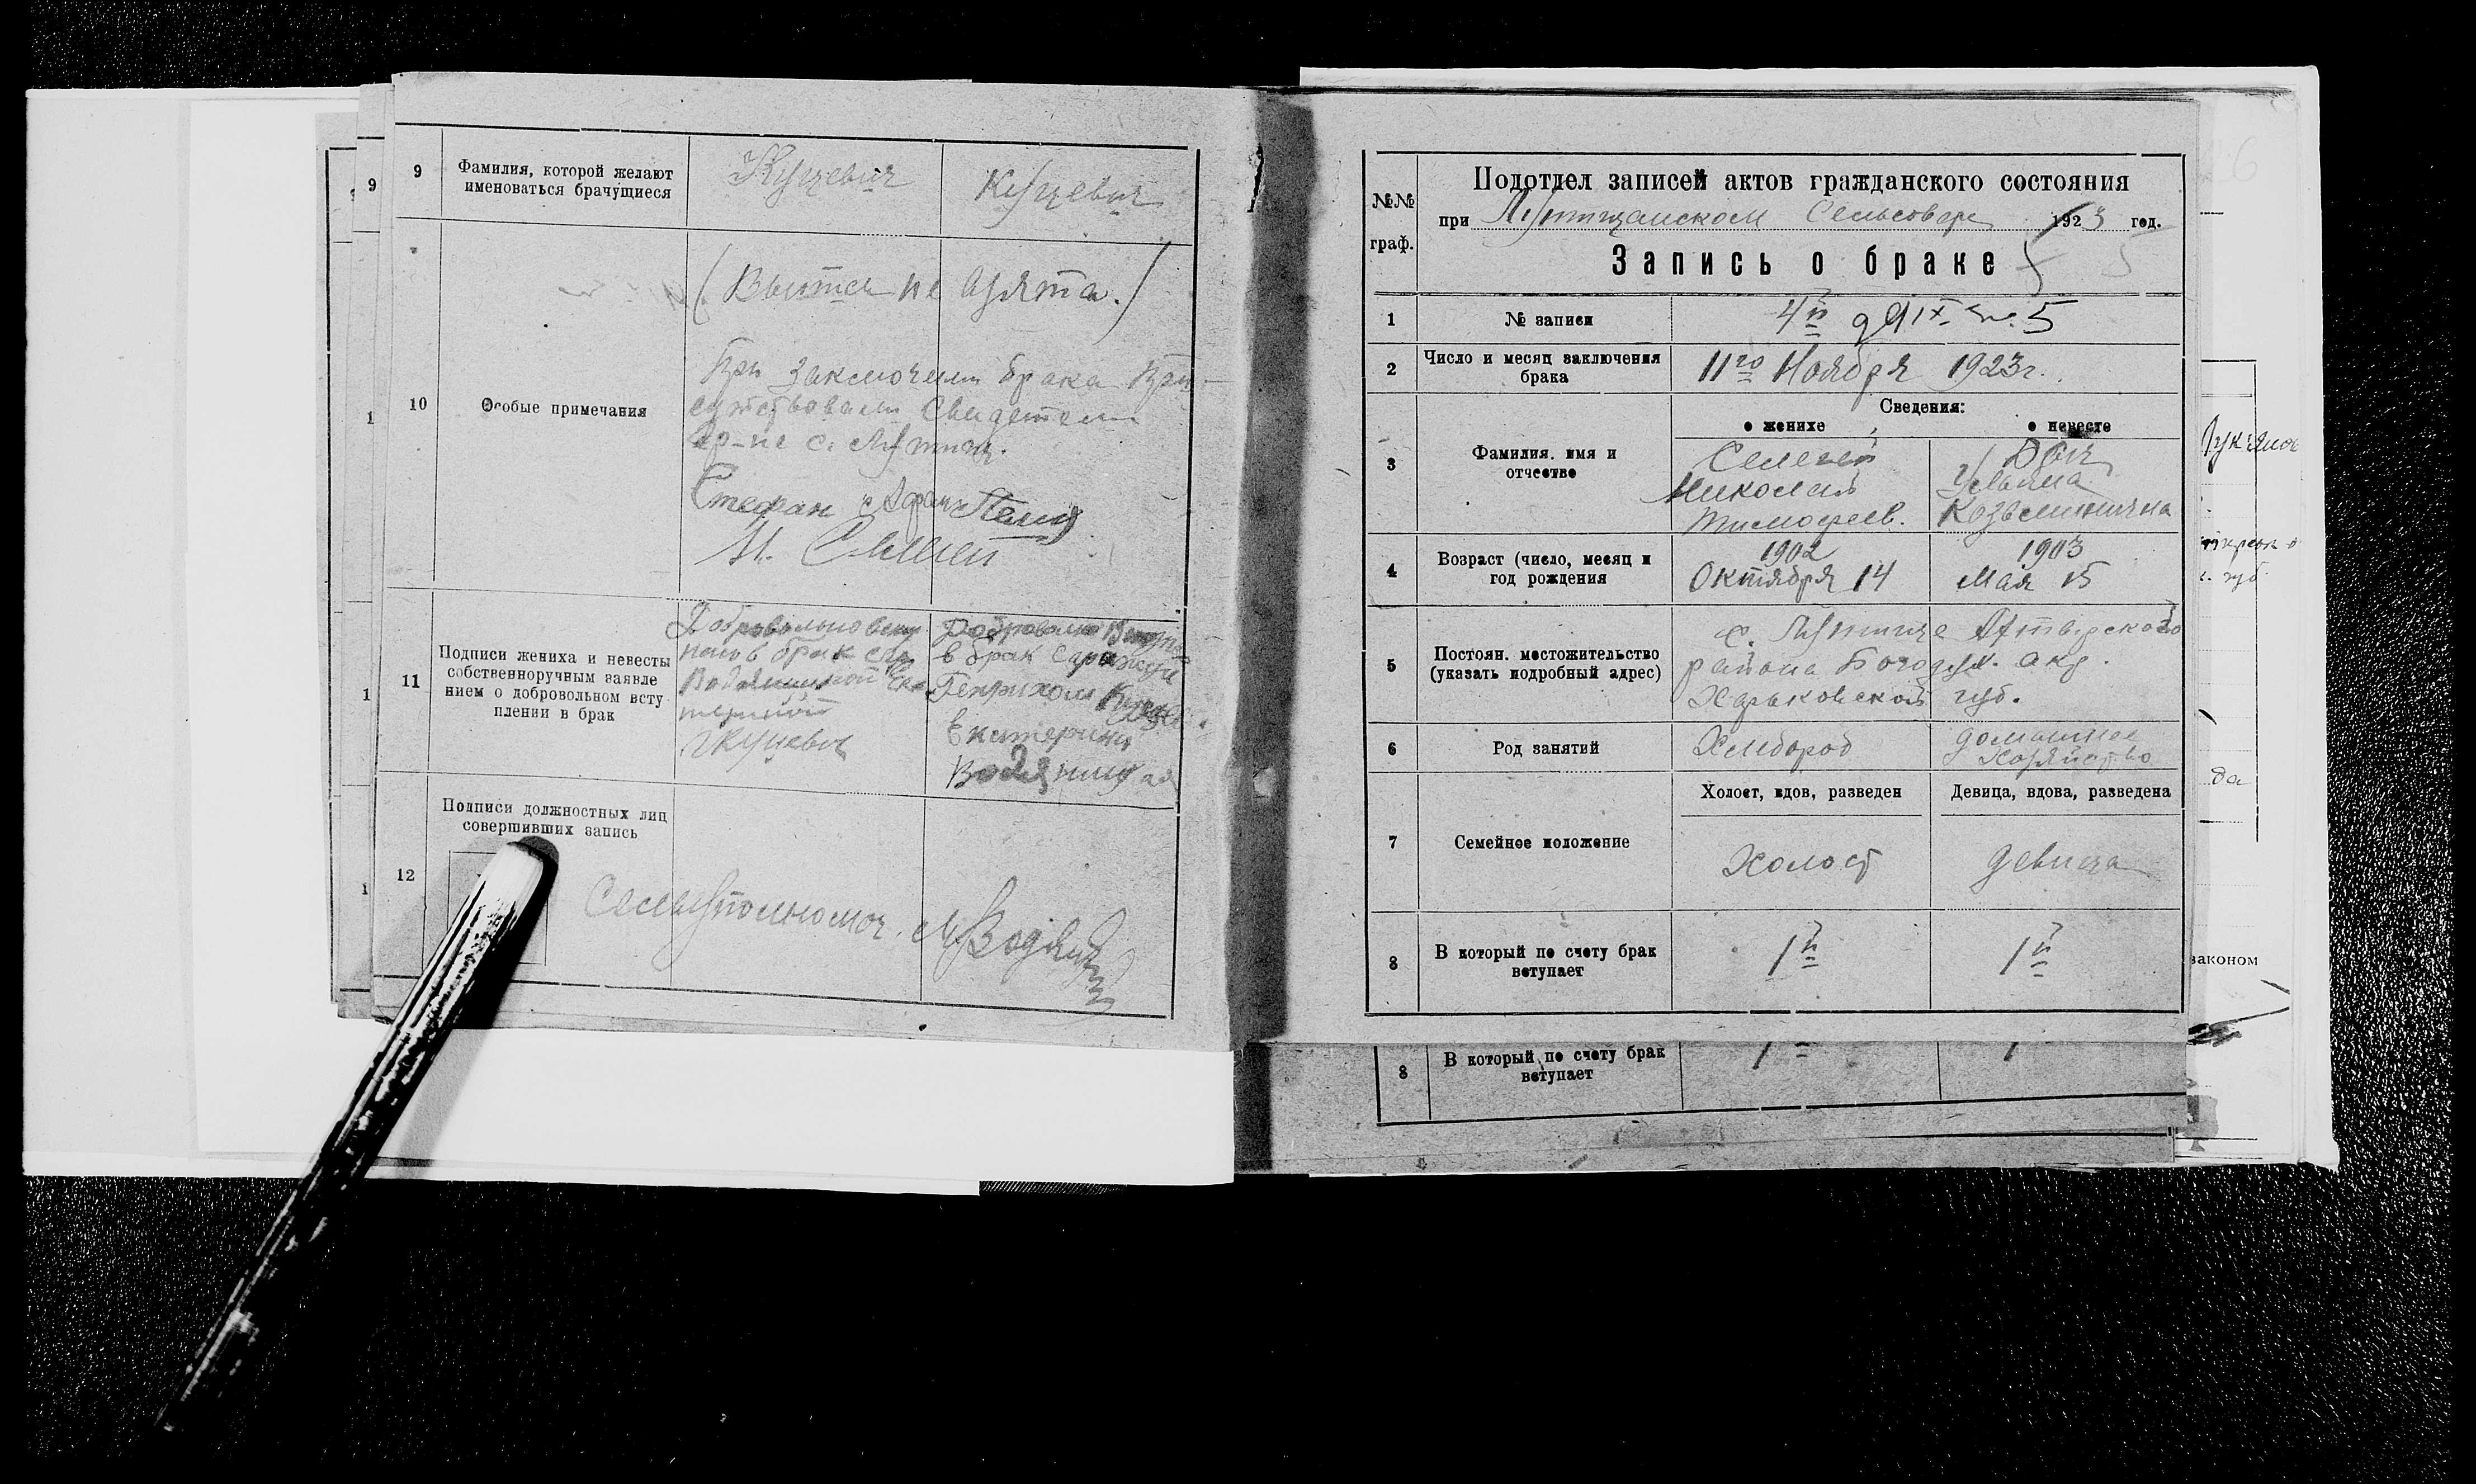 9
Фамилия, которой желают
именоваться брачущиеся
Куцевич
Куцевич
10
Особые примечания
(Выпись не взята.)
При заключении брака при-
сутствовали свидетели
гр-не с.
Стефан
Н. Семен
11
Подписи жениха и невесты
собственноручным заявле
нием о добровольном всту
плении в брак
Добровольно всту
паю в брак с гр
Водяницкой Ека
териной
Г Куцевич
Добровольно вступаю
в брак с гражд
Генрихом Куцев.
Екатерина
Водяницкая
12
Подписи должностных лиц
совершивших запись
Сельуполномоч.
№№
граф.
Подотдел записей актов гражданского состояния
при Сельсовете 1923 год.
Запись о браке 5
1
№ записи
4й 5
2
Число и месяц заключения
брака
11го Ноября 1923г.
Сведения:
о женихе
о невесте
3
Фамилия. имя и
отчество
Николай
Тимофеев.
Ульяна
Козьминична
4
Возраст (число, месяц и
год рождения
1902
Октября 14
1903
Мая 15
5
Постоян. местожительство
(указать подробный адрес)
с.
района Богодух. окр.
Харьковской губ.
6
Род занятий
Хлебороб
домашнее
хозяйство
7
Семейное положение
Холост, вдов, разведен
Девица, вдова, разведена
Холост
девица
8
В который по счету брак
вступает
1й
1й
8
В который по счету брак
вступает
законом